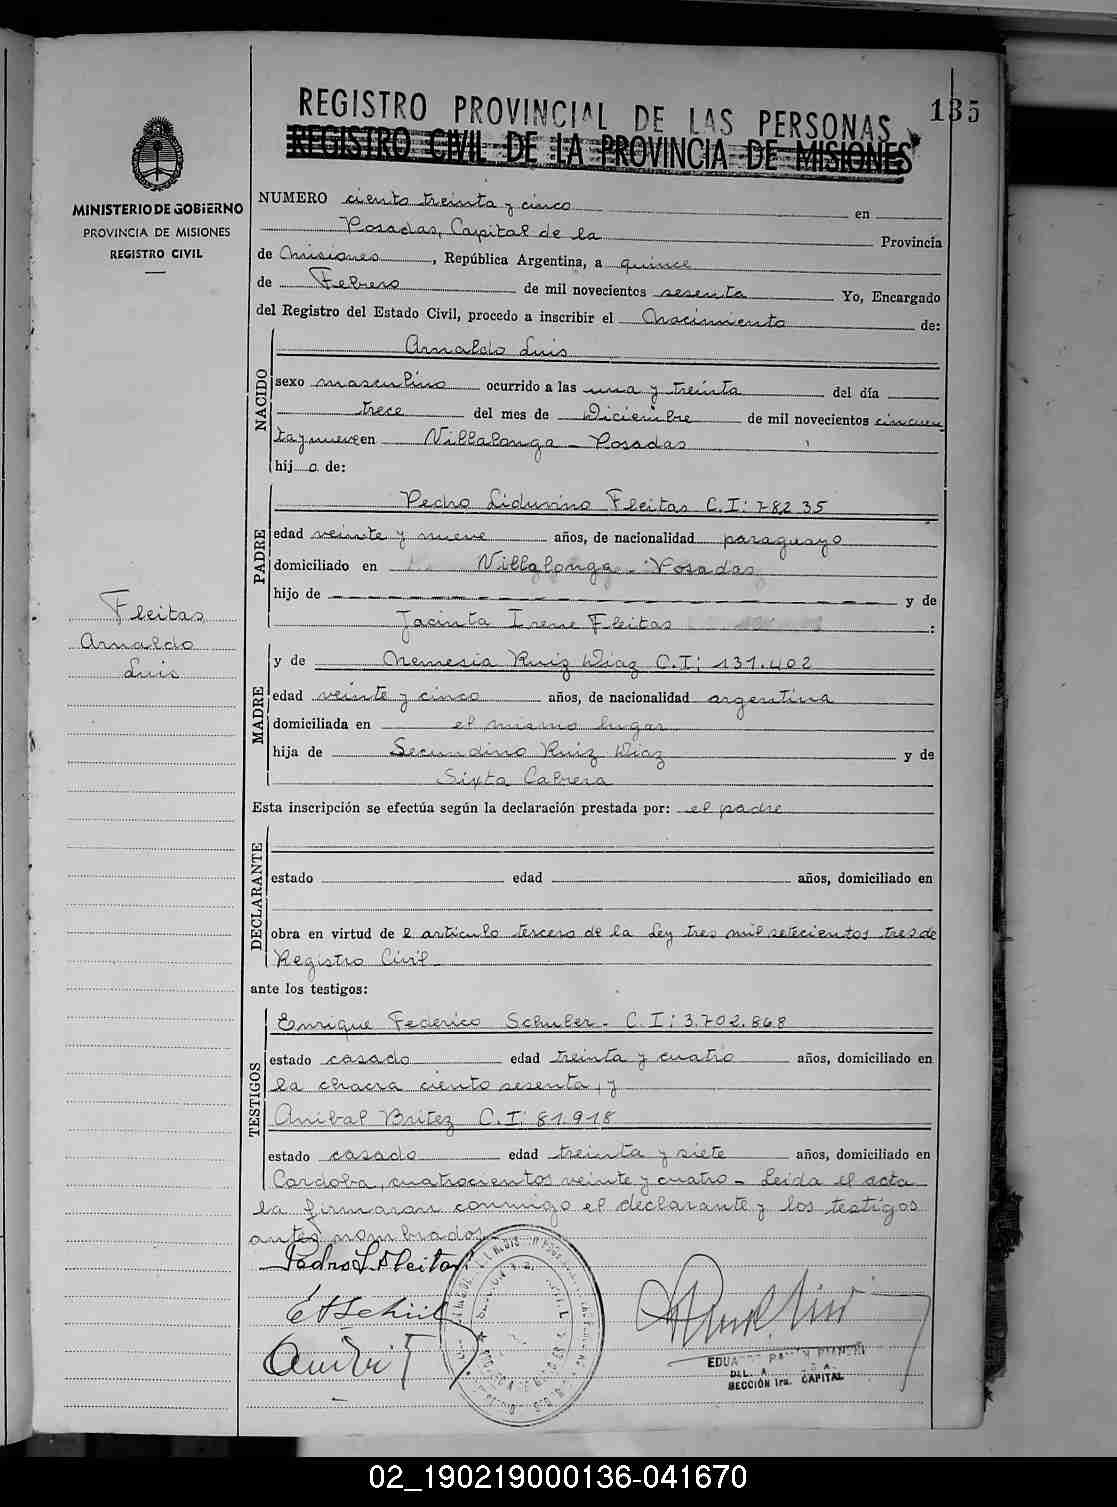 135
REGISTRO PROVINCIAL DE LAS PERSONAS
REGISTRO CIVIL DE LA PROVINCIA DE MISIONES
MINISTERIO DE GOBIERNO
PROVINCIA DE MISIONES
REGISTRO CIVIL
NUMERO ciento treinta y cinco en
Posadas, Capital de la Provincia
de Misiones, República Argentina, a quince
de Febrero de mil novecientos sesenta Yo, Encargado
del Registro del Estado Civil, procedo a inscribir el Nacimiento de:
NACIDO
Arnaldo Luis
sexo masculino ocurrido a las una y treinta del día
trece del mes de Diciembre de mil novecientos cincuen
ta y nueve en Villalonga - Posadas
hijo de:
PADRE
Pedro Liduvino Fleitas C.I: 78235
edad veinte y nueve años, de nacionalidad paraguayo
domiciliado en Villalonga - Posadas
hijo de y de
Jacinta Irene Fleitas :
Fleitas
Arnaldo
Luis
MADRE
y de Nemesia Ruiz Diaz C.I: 131.402
edad veinte y cinco años, de nacionalidad argentina
domiciliada en el mismo lugar
hija de Secundino Ruiz Diaz y de
Sixta Cabrera
Esta inscripción se efectúa según la declaración prestada por: el padre
DECLARANTE
estado edad años, domiciliado en
obra en virtud de el artículo tercero de la Ley tres mil setecientos tres de
Registro Civil
ante los testigos:
TESTIGOS
Enrique Federico Schuler - C.I: 3.702.868
estado casado edad treinta y cuatro años, domiciliado en
la chacra ciento sesenta, y
Anibal Britez C.I: 81.918
estado casado edad treinta y siete años, domiciliado en
Cordoba, cuatrocientos veinte y cuatro - Leida el acta
la firmaron conmigo el declarante y los testigos
antes nombrados
Pedro L. Fleitas
SECCIÓN 1ra. CAPITAL
02_190219000136-041670